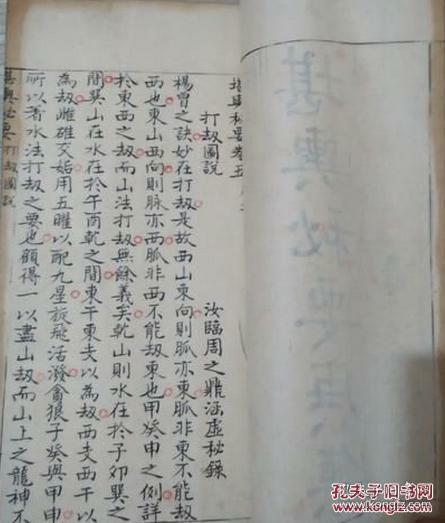 堪輿秘要卷五
打刼圖說
汝臨周之鼎涵虛秘錄
楊曾之訣妙在打刼是故西山東向則脈亦東脈非東不能刼
西也東山西向則脉亦西脈非西不能刼東也甲癸申之例詳
於東西之刼而山法打刼無餘義矣乾山則水在於子卯巽之
間巽山在水在於午酉乾之間東干東支以為刼西支西干以
為刼雌雄交媾用五曜以配九星旋飛活潑貪狼子癸與甲申
所以著水法打刼之要也顧得一以盡山刼而山上之龍神不
堪輿秘要打刼圖說
堪輿秘要
孔夫子旧书网